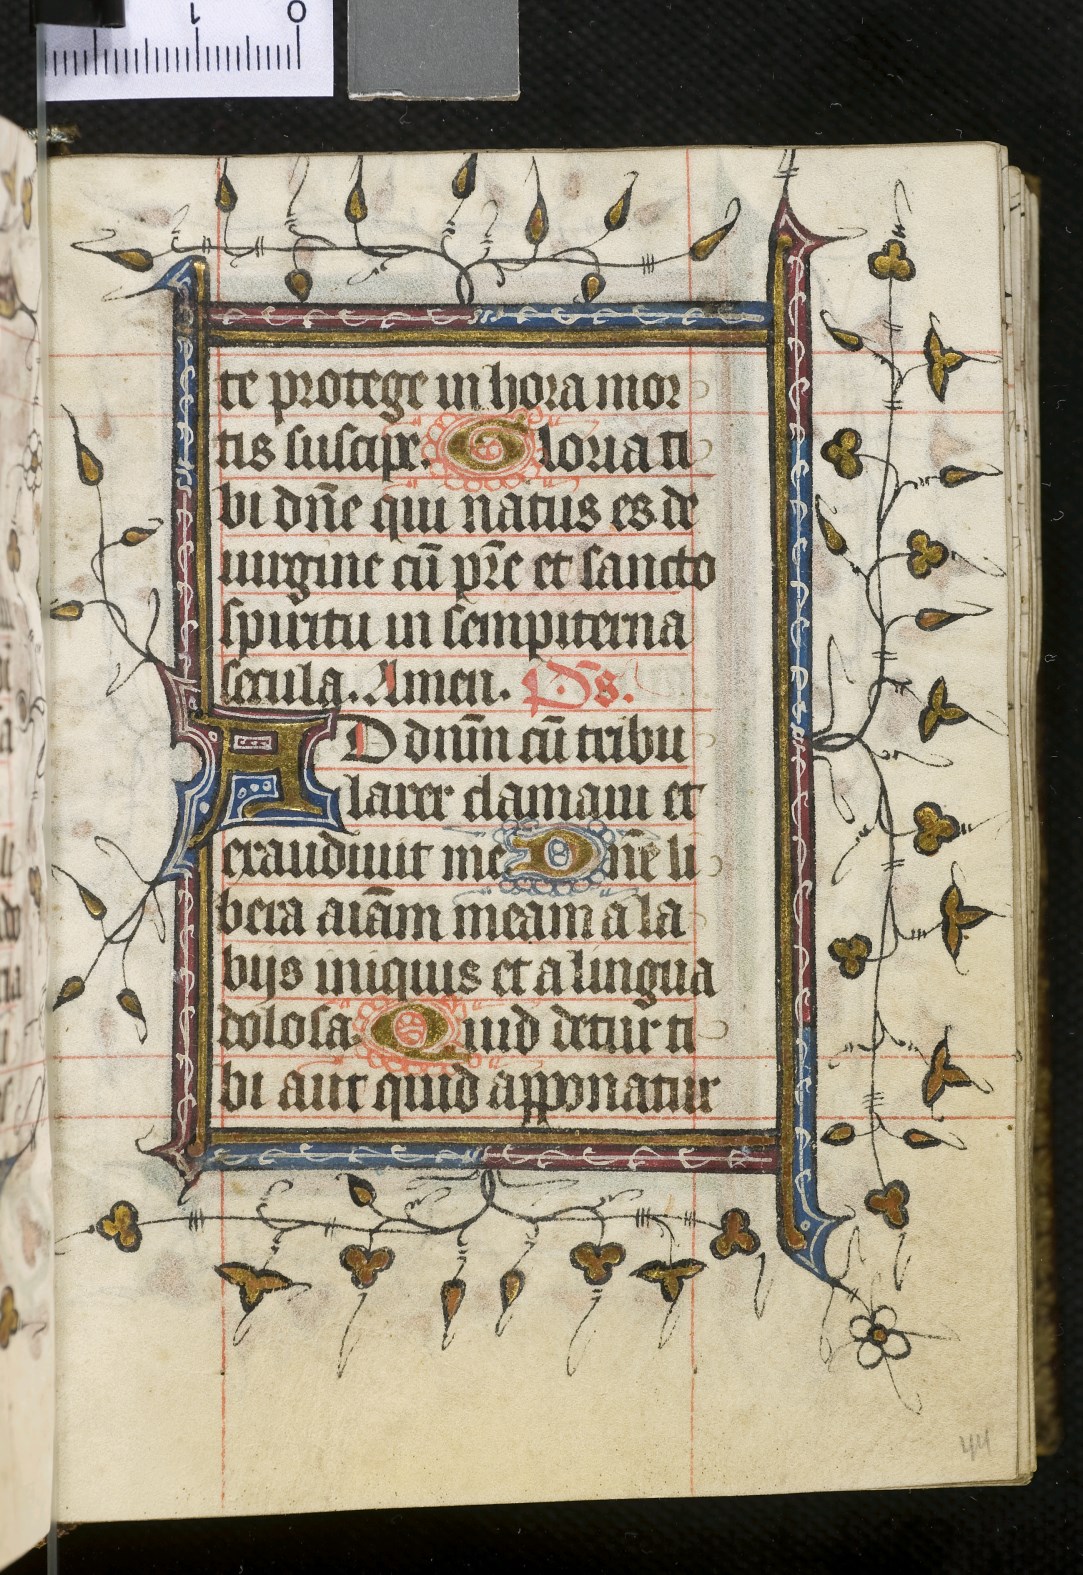 1 0
te protege in hora mor
tis suscipe. Gloria ti
bi dn̄e qui natus es de
uirgine cū pr̄e et sancto
spiritu in sempiterna
secula. Amen. Ps̄.
AD dnm̄ cū tribu
larer clamaui et
exaudiuit me Dn̄e li
bera aīam meam a la
bijs iniquis et a lingua
dolosa Quid detur ti
bi aut quid apponatur
44